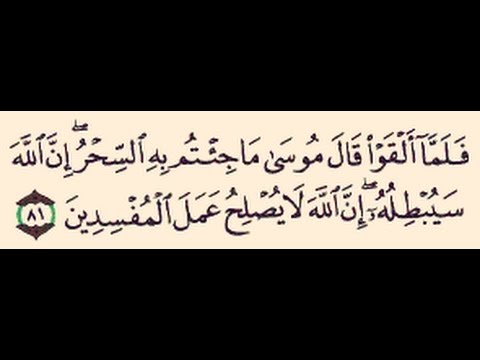 فَلَمَّآ أَلْقَوْا۟ قَالَ مُوسَىٰ مَا جِئْتُم بِهِ ٱلسِّحْرُ ۖ إِنَّ ٱللَّهَ
سَيُبْطِلُهُۥٓ ۖ إِنَّ ٱللَّهَ لَا يُصْلِحُ عَمَلَ ٱلْمُفْسِدِينَ ٨١